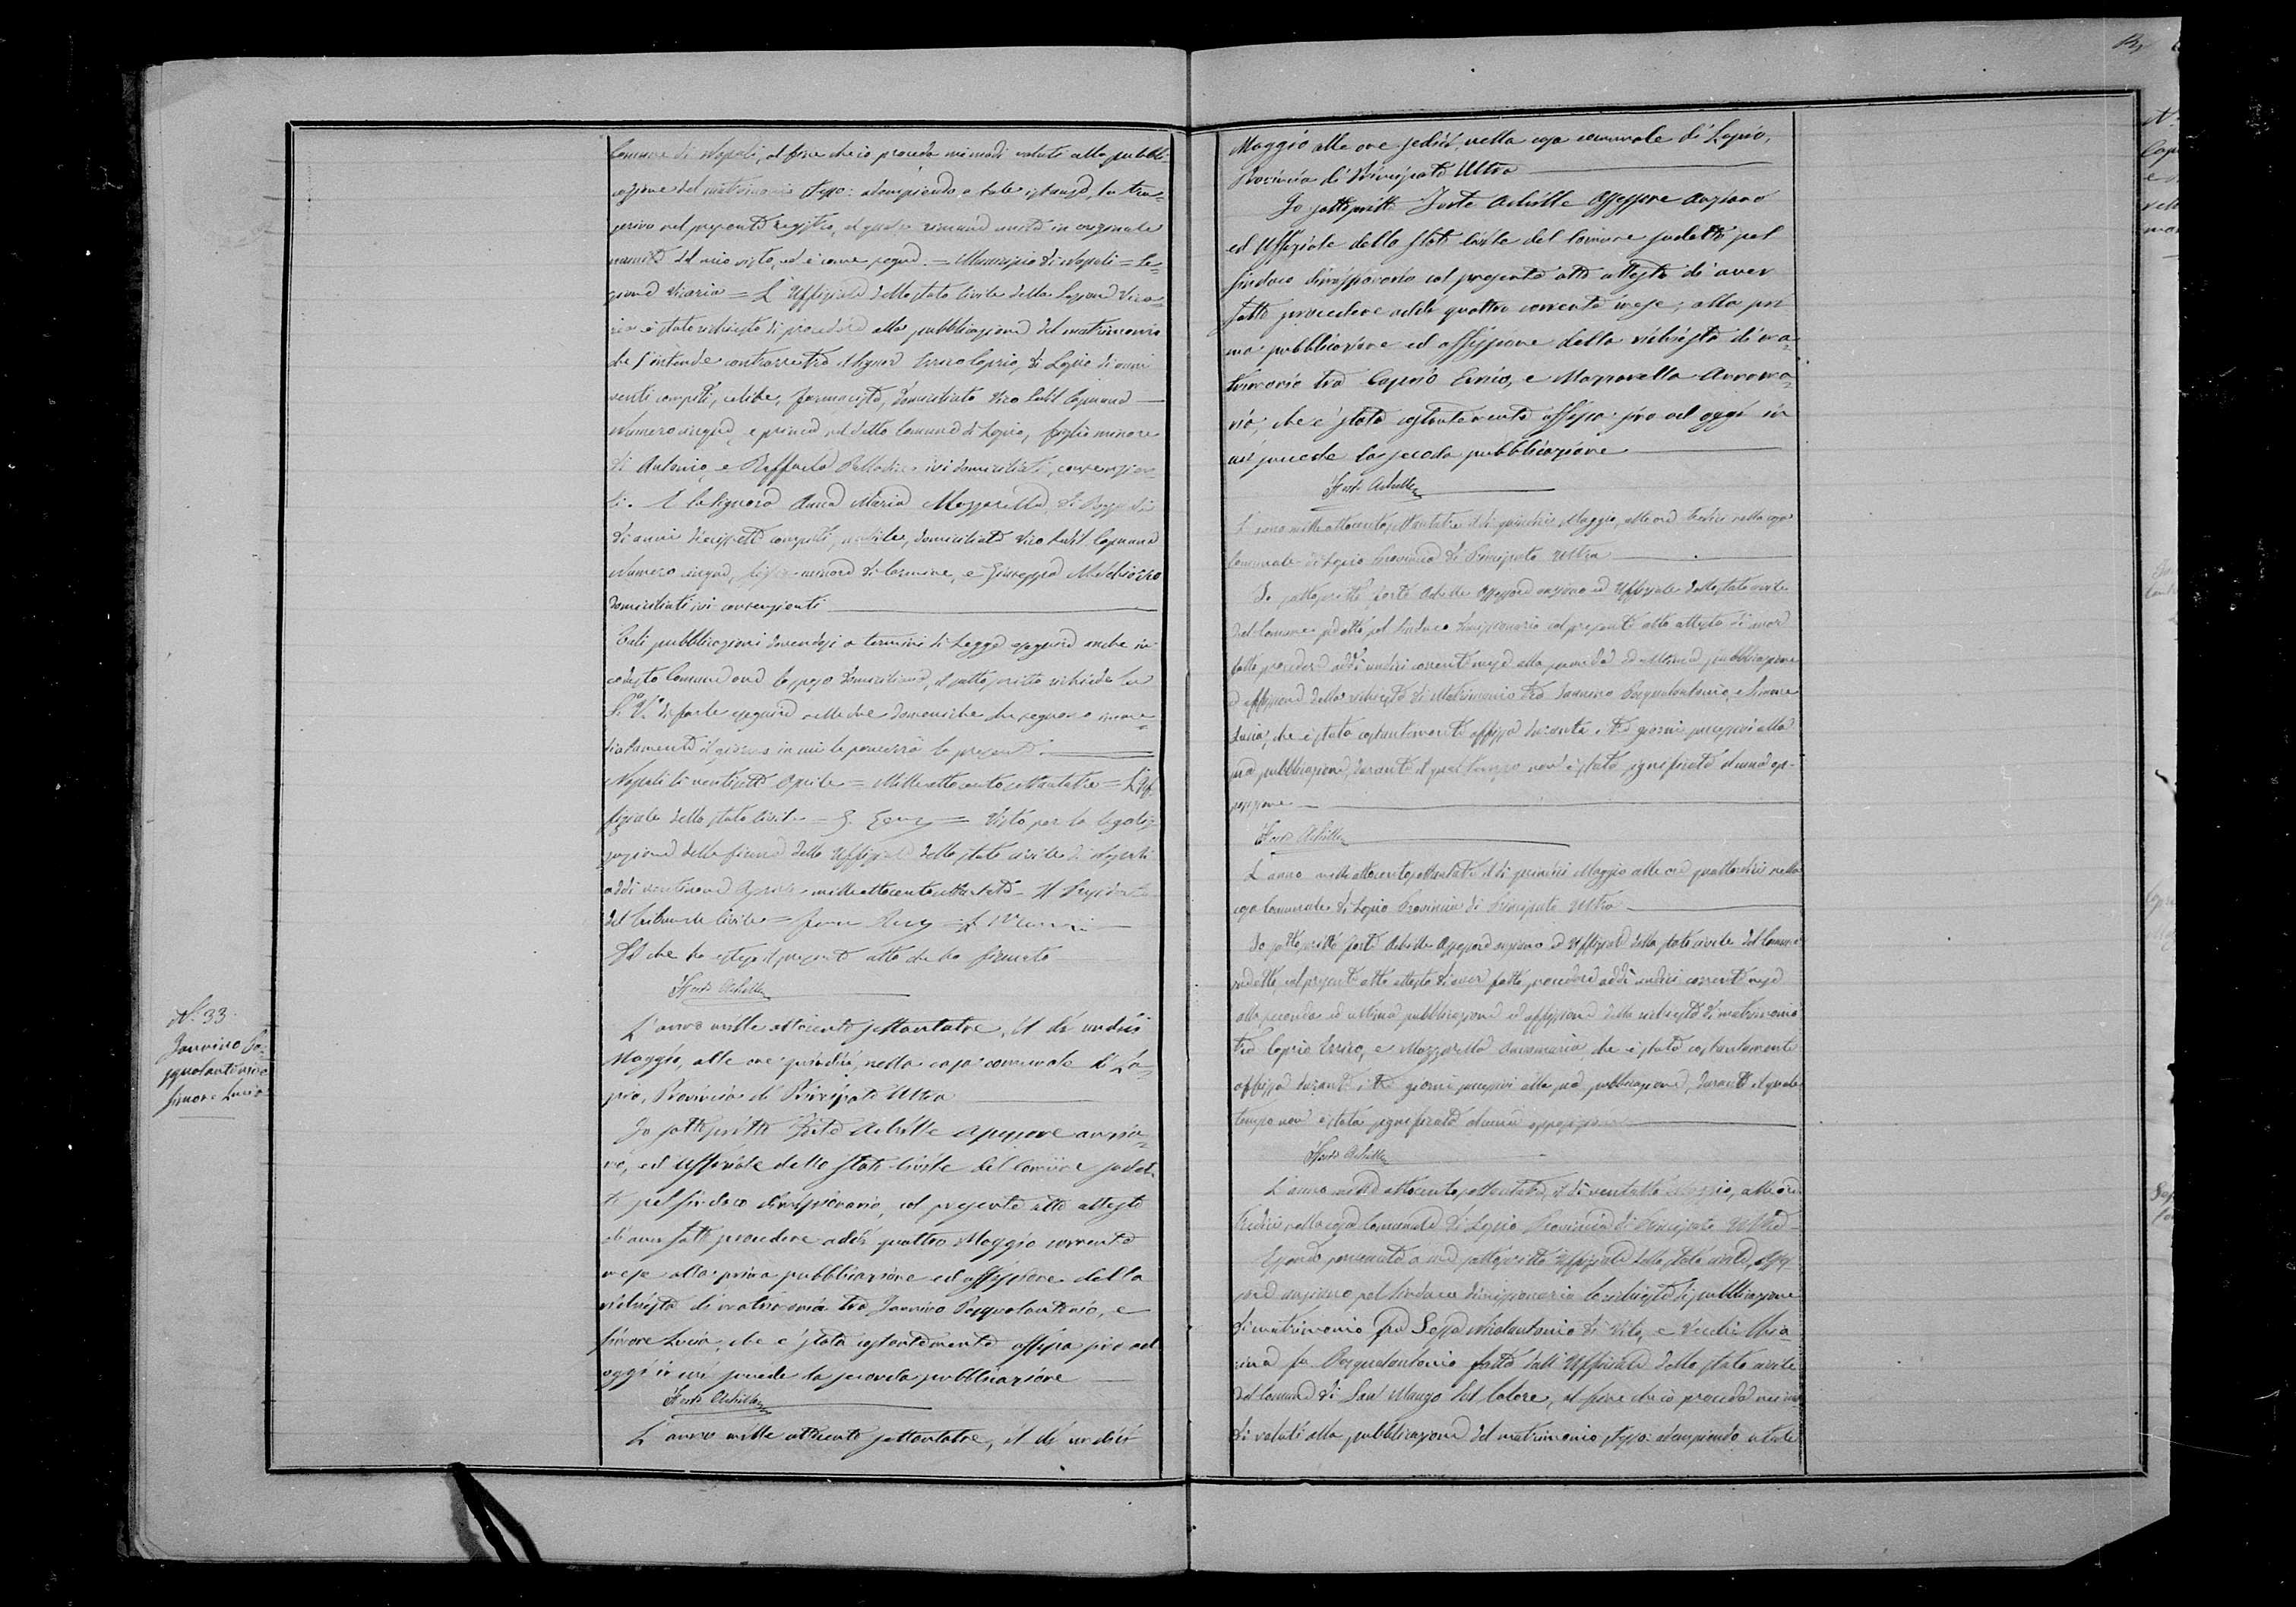 Comune di Napoli, al fine che io proceda nei modi voluti alla pubbli-
cazione del matrimonio stesso: adempiendo a tale istanza, la tra-
scrivo nel presente registro, al quale rimane unita in originale
munita del mio visto, ed è come segue. = Municipio di Napoli = Se-
zione Vicaria = L'Uffiziale dello stato Civile della Sezione Vica-
ria è stato richiesto di procedere alla pubblicazione del matrimonio
che s'intende contrarre tra il Signor Errico Caprio, di Lapio di anni
venti compiti, celibe, farmacista, domiciliato Vico
Numero cinque, e prima nel detto Comune di Lapio, figlio minore
di Antonio, e Raffaela ivi domiciliati, consenzien-
ti. E la Signora Anna Maria Mazzarella, di
di anni diciassette compiti, nubile, domiciliata Vico
Numero cinque, figlia minore di Carmine, e Giuseppa Melchiorre
domiciliati ivi consenzienti
Tali pubblicazioni dovendosi a termini di Legge eseguire anche in
codesto Comune ove lo sposo domiciliava, il sottoscritto richiede la
S.ª V.ª di farle eseguire nelle due domeniche che seguono imme-
diatamente il giorno in cui le perverrà la presente
Napoli li ventisette Aprile = Mille ottocento settantatre = L'Uf-
fiziale dello stato Civile = G. = Visto per la legaliz-
zazione della firma dello Uffiziale dello stato civile di Napoli
addì ventinove Aprile mille ottocento settantatre = Il Presidente
del Tribunale Civile =
Del che ho esteso il presente atto che ho firmato
Forte Achille
N.º 33.
Jannino Pa-
squalantonio
Simone Lucia
L'anno mille ottocento settantatre, il dì undici
Maggio, alle ore quindici, nella casa comunale di La-
pio, Provincia di Principato Ultra
Io sottoscritto Forte Achille Assessore anzia-
no, ed Uffiziale dello Stato Civile del Comune sudet-
to pel Sindaco dimissionario, col presente atto attesto
di aver fatto procedere addì quattro Maggio corrente
mese alla prima pubblicazione ed affissione della
richiesta di matrimonio tra Jannino Pasqualantonio, e
Simone Lucia, che è stata costantemente affissa fino ad
oggi in cui succede la seconda pubblicazione
Forte Achille
L'anno mille ottocento settantatre, il dì undici
Maggio alle ore sedici, nella casa comunale di Lapio,
Provincia di Principato Ultra
Io sottoscritto Forte Achille Assessore Anziano
ed Uffiziale dello Stato Civile del Comune sudetto pel
Sindaco dimissionario col presente atto attesto di aver
fatto procedere addì quattro corrente mese, alla pri
ma pubblicazione ed affissione della richiesta di ma-
trimonio tra Caprio Errico, e Mazzarella Annama-
ria, che è stata costantemente affissa fino ad oggi in
cui succede la seconda pubblicazione
Forte Achille
L'anno mille ottocento settantatre il dì quindici Maggio, alle ore tredici nella casa
Comunale di Lapio Provincia di Principato Ultra
Io sottoscritto Forte Achille Assessore anziano ed Uffiziale dello stato civile
del Comune sudetto pel Sindaco dimissionario col presente atto attesto di aver
fatto procedere addì undici corrente mese alla seconda ed ultima pubblicazione
ed affissione della richiesta di Matrimonio tra Jannino Pasqualantonio, e Simone
Lucia, che è stata costantemente affissa durante i tre giorni successivi alla
sua pubblicazione, durante il qual tempo non è stata significata alcuna op-
posizione
Forte Achille
L'anno mille ottocento settantatre il dì quindici Maggio alle ore quattordici nella
casa Comunale di Lapio Provincia di Principato Ultra
Io sottoscritto Forte Achille Assessore anziano ed Uffiziale dello stato civile del Comune
sudetto, col presente atto attesto di aver fatto procedere addì undici corrente mese
alla seconda ed ultima pubblicazione ed affissione della richiesta di matrimonio
tra Caprio Errico, e Mazzarella Annamaria che è stata costantemente
affissa durante i tre giorni successivi alla sua pubblicazione, durante il quale
tempo non è stata significata alcuna opposizione
Forte Achille
L'anno mille ottocento settantatre, il dì ventotto Maggio, alle ore
tredici nella casa Comunale di Lapio Provincia di Principato Ultra
Essendo pervenuta a me sottoscritto Uffiziale dello stato civile, Asses-
sore anziano pel Sindaco dimissionario la richiesta di pubblicazione
di matrimonio fra Sessa Nicolantonio di Vito, e
fu Pasqualantonio fatta dall'Uffiziale dello stato civile
del Comune di San Mango sul Calore, al fine che io proceda nei mo
di voluti alla pubblicazione del matrimonio stesso: adempiendo a tale